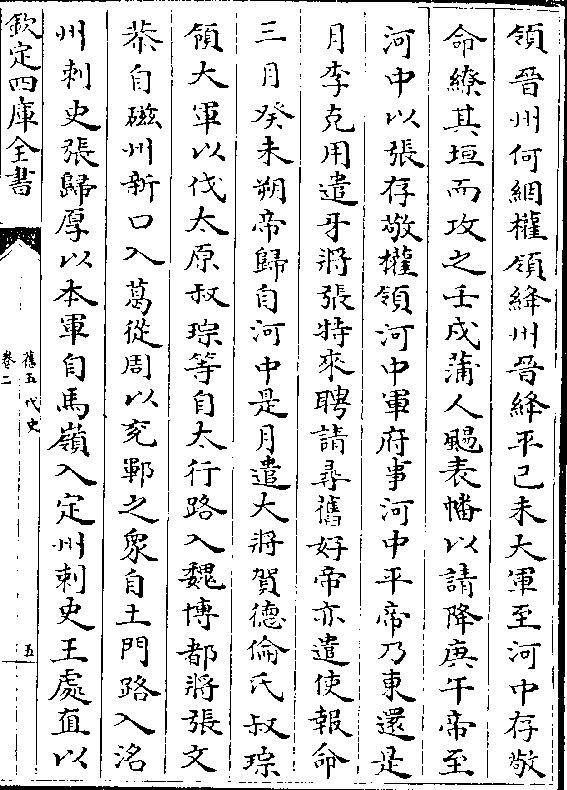 領晉州何絪權領絳州晉絳平己未大軍至河中存敬
命繚其垣而攻之壬戌蒲人颺表幡以請降庚午帝至
河中以張存敬權領河中軍府事河中平帝乃東還是
月李克用遣牙將張特來聘請尋舊好帝亦遣使報命
三月癸未朔帝歸自河中是月遣大將賀德倫氏叔琮
領大軍以伐太原叔琮等自太行路入魏博都將張文
恭自磁州新口入葛從周以兗鄆之衆自土門路入洺
州刺史張歸厚以本軍自馬嶺入定州刺史王處直以
欽定四庫全書
舊五代史
卷二
五